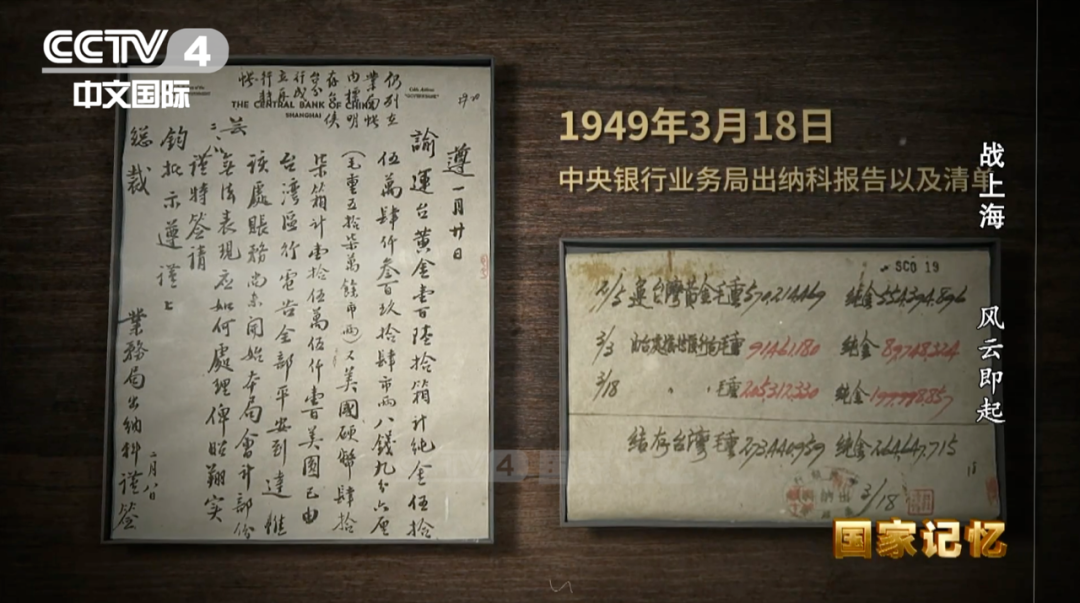 CCTV 4
中文国际
1949年3月18日
中央银行业务局出纳科报告以及清单
战上海
风云即起
THE CENTRAL BANK OF CHINA
SHANGHAI
遵一月廿日
諭運台黃金壹百陸拾箱計純金伍拾
伍萬肆仟叁百玖拾肆市兩八錢九分六厘
(毛重五拾柒萬餘市兩)又美國硬幣肆拾
柒箱計壹拾伍萬伍仟壹百美圓已由
台灣區行電告全部平安到達惟
該處賬務尚未開始本局會計部份
無法表現應如何處理俾昭翔實
謹特簽請
鈞批示遵謹上
總裁
業務局出納科謹簽
二月八日
SCO 19
2/5 運台灣黃金毛重570,214.469 純金554,394.896
3/3 毛重91,461.180 純金89,748.324
3/18 〃 〃 毛重205,312.330 純金199,998.857
結存台灣毛重273,440.959 純金264,647.715
3/18
国家记忆